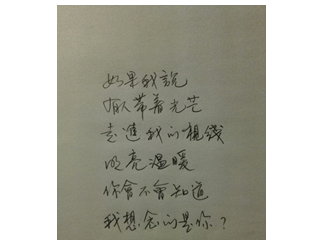 如果我說
有人帶著光芒
走進我的視線
明亮溫暖
你會不會知道
我想念的是你？